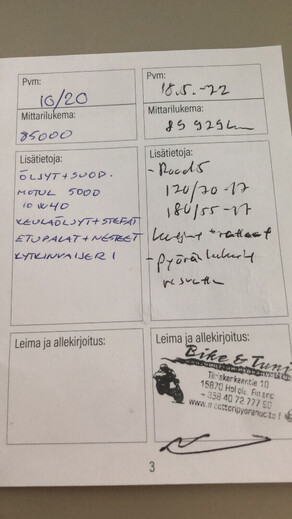 Pvm:
10/20
Mittarilukema:
85000
Lisätietoja:
ÖLJYT + SUOD.
MOTUL 5000
10W40
KEULAÖLJYT + STEFAT
ETUPALAT + NESTEET
KYTKINVAIJERI
Leima ja allekirjoitus:
Pvm:
18.5.-22
Mittarilukema:
89929km
Lisätietoja:
- Road5
120/70-17
180/55-17
Ketjut + rattaat
-
Leima ja allekirjoitus:
Bike & Tuni
10
15870 Hollola, Finland
358 40 72 777 90
3